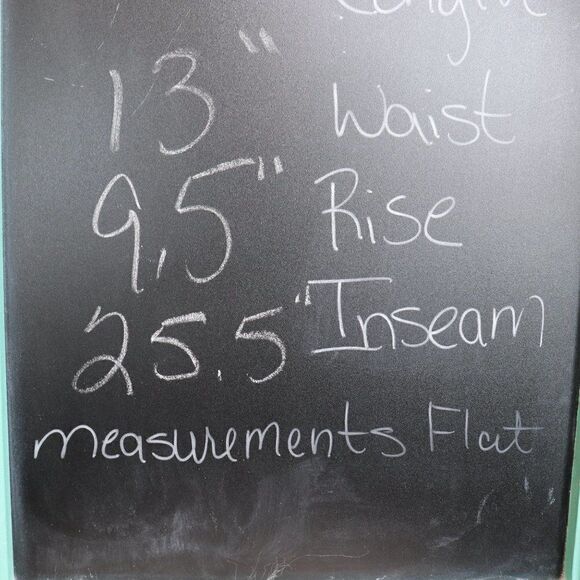 Length
13" Waist
9.5" Rise
25.5" Inseam
measurements Flat